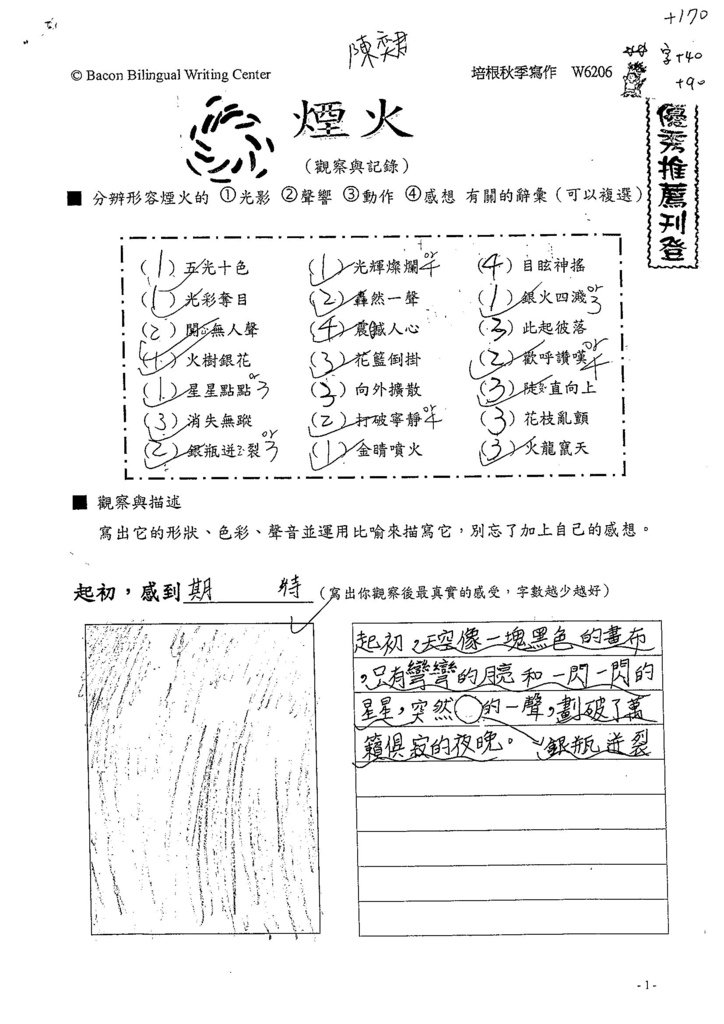 +170
陳奕君
字+40
+90
© Bacon Bilingual Writing Center 培根秋季寫作 W6206
煙火
(觀察與記錄)
優秀推薦刊登
■ 分辨形容煙火的 ①光影 ②聲響 ③動作 ④感想 有關的辭彙(可以複選)
(1) 五光十色 (1) 光輝燦爛 or 4 (4) 目眩神搖
(1) 光彩奪目 (2) 轟然一聲 (1) 銀火四濺 or 3
(2) 闃無人聲 (4) 震撼人心 (3) 此起彼落
(4) 火樹銀花 (3) 花籃倒掛 (2) 歡呼讚嘆 or 4
(1) 星星點點 or 3 (3) 向外擴散 (3) 陡直向上
(3) 消失無蹤 (2) 打破寧靜 or 4 (3) 花枝亂顫
(2) 銀瓶迸裂 or 3 (1) 金睛噴火 (3) 火龍竄天
■ 觀察與描述
寫出它的形狀、色彩、聲音並運用比喻來描寫它,別忘了加上自己的感想。
起初,感到期 待(寫出你觀察後最真實的感受,字數越少越好)
起初,天空像一塊黑色的畫布
,只有彎彎的月亮和一閃一閃的
星星,突然 的一聲,劃破了萬
籟俱寂的夜晚。 銀瓶迸裂
- 1 -